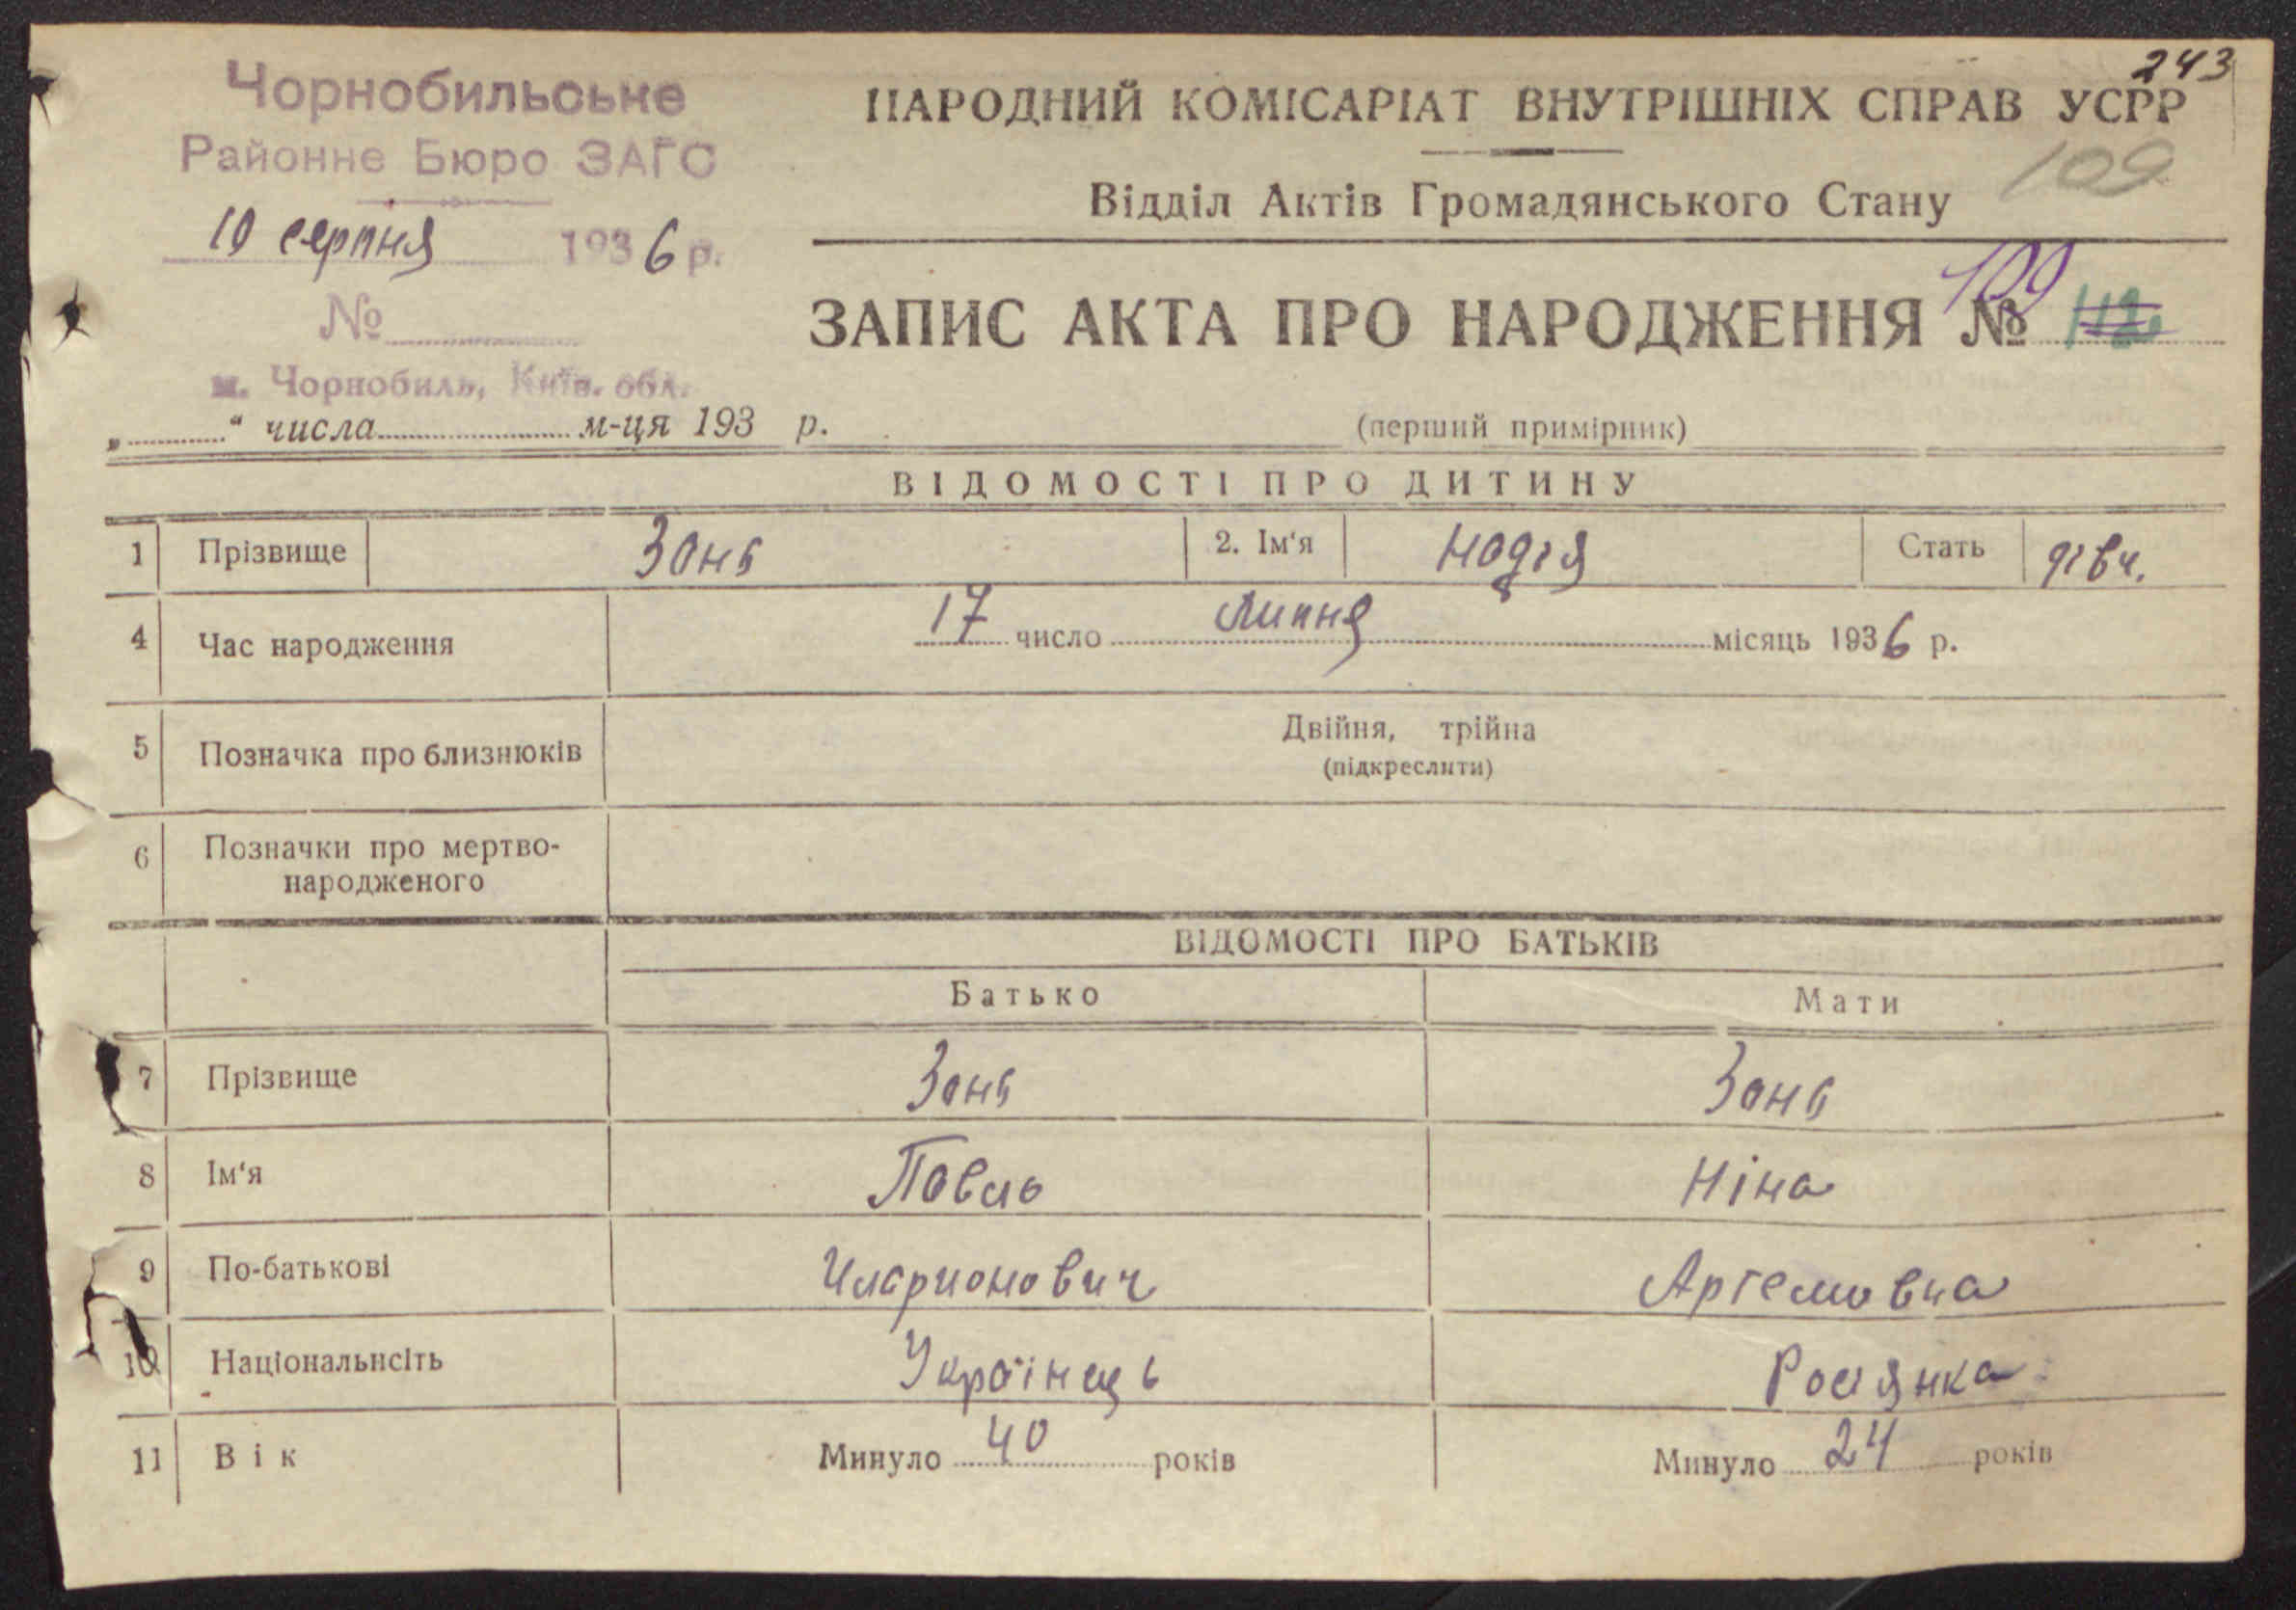 243
Чорнобильське
Районне Бюро ЗАГС
НАРОДНИЙ КОМІСАРІАТ ВНУТРІШНІХ СПРАВ УСРР
109
Відділ Актів Громадянського Стану
10 серпня 1936 р.
№
109
ЗАПИС АКТА ПРО НАРОДЖЕННЯ № 112
м. Чорнобиль, Київ. обл.
„ “ числа м-ця 193 р.
(перший примірник)
ВІДОМОСТІ ПРО ДИТИНУ
1 Прізвище Зонь 2. Ім'я Надія Стать дівч.
4 Час народження 17 число Липня місяць 1936 р.
5 Позначка про близнюків Двійня, трійна
(підкреслити)
6 Позначки про мертво-
народженого
ВІДОМОСТІ ПРО БАТЬКІВ
Батько Мати
7 Прізвище Зонь Зонь
8 Ім'я Павло Ніна
9 По-батькові Иларионович Артемовна
10 Національнсіть Українець Росіянка
11 Вік Минуло 40 років Минуло 24 років